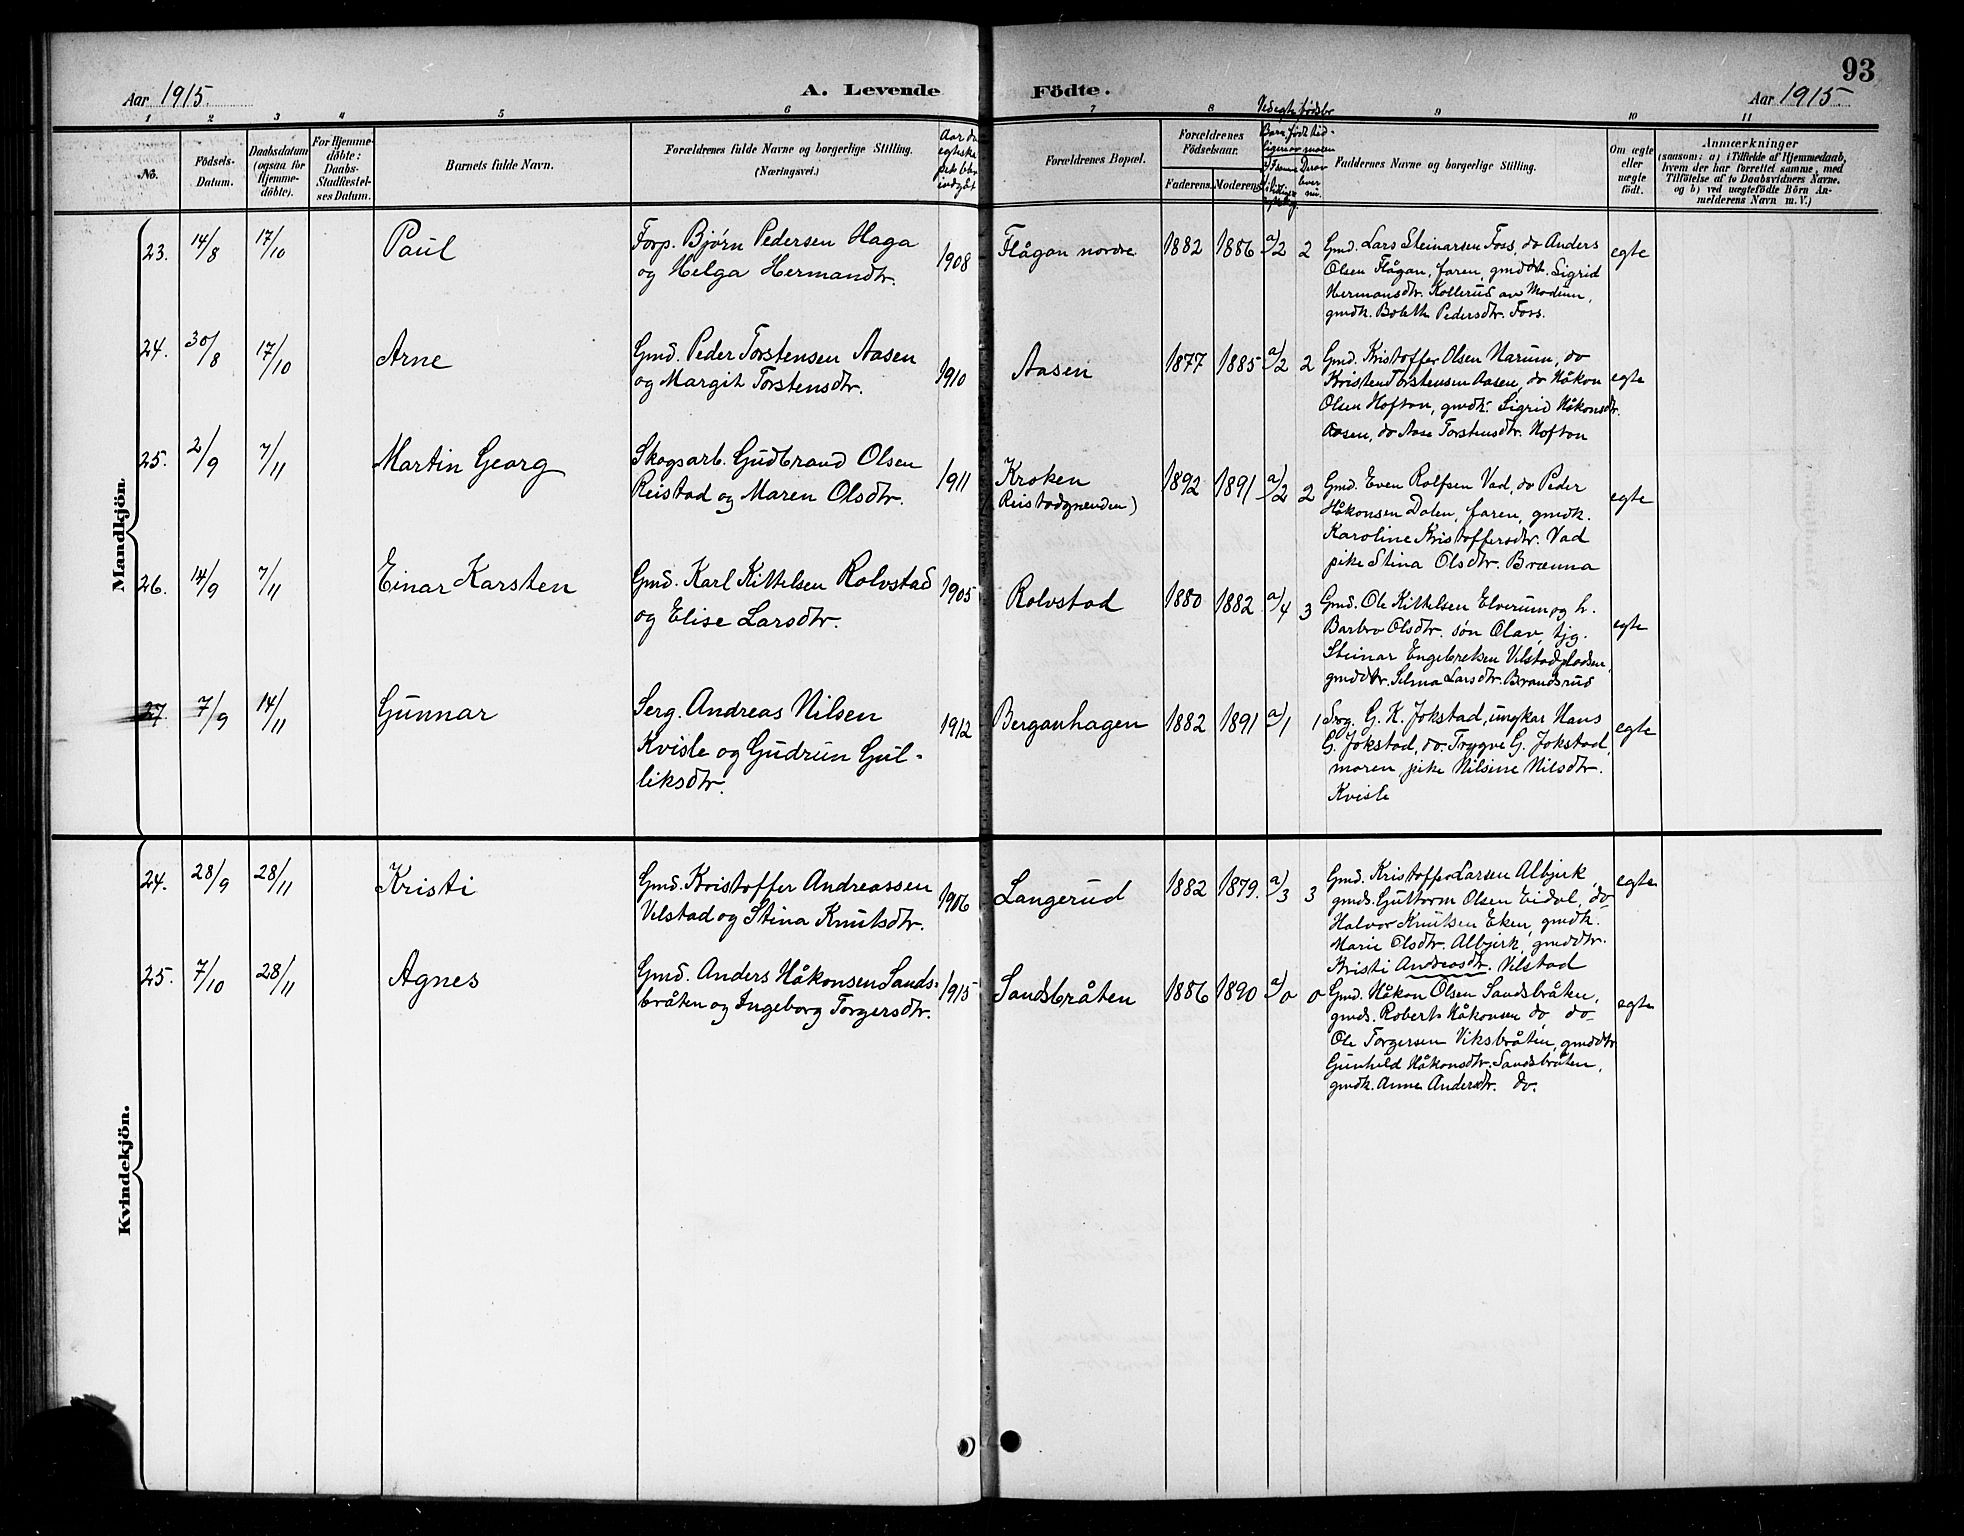 93
Aar 1915.
A. Levende
Födte.
Aar 1915.
1 2 3 4 5 6 7 8 9 10 11
No.
Födsels-
Datum.
Daabsdatum
(ogsaa for
Hjemme-
döbte).
For Hjemme-
döbte:
Daabs-
Stadfæstel-
ses Datum.
Barnets fulde Navn.
Forældrenes fulde Navne og borgerlige Stilling.
(Næringsvei.)
Aar da
egteska-
pet blev
indgåt
Forældrenes Bopæl.
Forældrenes
Födselsaar.
Faderens. Moderens.
Ved egte fødsler
Barn født tid-
ligere av moren
Derav
lever
nu.
Faddernes Navne og borgerlige Stilling.
Om ægte
eller
uægte
födt.
Anmærkninger
(saasom: a) i Tilfælde af Hjemmedaab,
hvem der har forrettet samme, med
Tilföielse af to Daabsvidners Navne.
og b) ved uægtefödte Börn An-
melderens Navn m. V.)
Mandkjön.
23. 14/8 17/10 Paul
Forp. Bjørn Pedersen Haga
og Helga Hermandtr.
1908
Flågan nordre
1882 1886 a/2 2
Gmd. Lars Steinarsen Foss, do Anders
Olsen Flågan, faren, gmddt. Sigrid
Hermansdtr. Kollerud av Modum,
gmdk. Boleth Pedersdtr. Foss.
egte
24. 30/8 17/10 Arne
Gmd. Peder Torstensen Aasen
og Margit Torstensdtr.
1910
Aasen
1877 1885 a/2 2
Gmd. Kristoffer Olsen Narum, do
Kristen Torstensen Aasen, do Håkon
Olsen Hofton, gmdk. Sigrid Håkonsdtr.
Aasen, do Aase Torstensdtr. Hofton
egte
25. 2/9 7/11 Martin Georg
Skogsarb. Gudbrand Olsen
Reistad og Maren Olsdtr.
1911
Kroken
(Reistadgrenden)
1892 1891 a/2 2
Gmd. Even Rolfsen Vad, do Peder
Håkonsen Dalen, faren, gmdk.
Karoline Kristoffersdtr. Vad
pike Stina Olsdtr. Brænna
egte
26. 14/9 7/11 Einar Karsten
Gmd. Karl Kittelsen Rolvstad
og Elise Larsdtr.
1905
Rolvstad
1880 1882 a/4 3
Gmd. Ole Kittelsen Elverum og h.
Barbro Olsdtr. søn Olav, tjg.
Steinar Engebretsen Velstadpladsen,
gmddtr. Selma Larsdtr. Brandsrud
egte
27. 7/9 14/11 Gunnar
Serg. Andreas Nilsen
Kvisle og Gudrun Gul-
liksdtr.
1912
Berganhagen
1882 1891 a/1 1
Srg. G. K. Jokstad, ungkar Hans
G. Jokstad, do. Trygve G. Jokstad,
moren, pike Nilsine Nilsdtr.
Kvisle
egte
Kvindekjön.
24. 28/9 28/11 Kristi
Gmd. Kristoffer Andreassen
Velstad og Stina Knutsdtr.
1906
Langerud
1882 1879. a/3 3
Gmd. Kristoffer Larsen Albjerk,
gmds. Guttorm Olsen Eidal, do
Halvor Knutsen Eken, gmdk.
Marie Olsdtr. Albjerk, gmddtr.
Kristi Andreasdtr. Vilstad
egte
25. 7/10 28/11 Agnes
Gmd. Anders Håkonsen Sands-
bråten og Ingeborg Torgersdtr.
1915
Sandsbråten
1886 1890 a/0 0
Gmd. Håkon Olsen Sandsbråten,
gmds. Robert Håkonsen do, do
Ole Torgersen Viksbråten, gmddtr
Gunhild Håkonsdtr. Sandsbråten,
gmdk. Anne Andersdtr. do.
egte